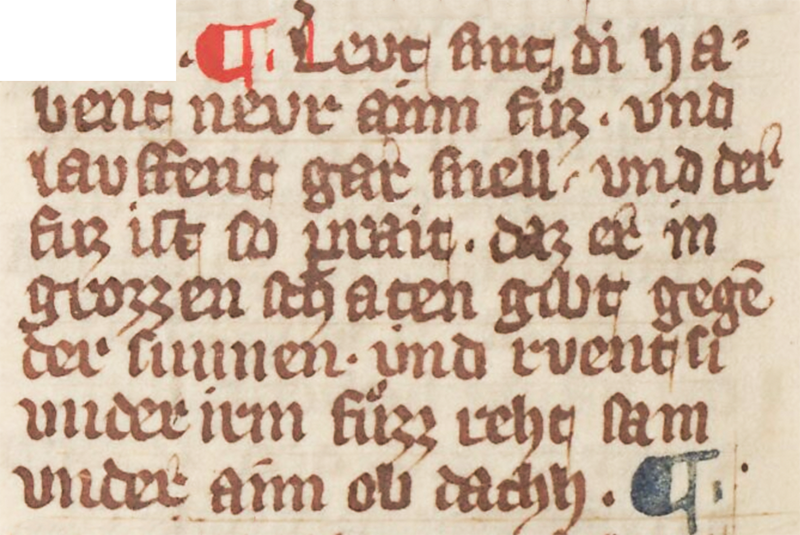 ¶. Leut sint di ha⸗
bent neur ainn fuͦz. und
lauffent gar snell. und der
fuz ist so prait. daz er in
grozzen schaten gibt gegē
der sunnen. und ruent si
under irm fuͦzz reht sam
under ainn ob dachh. ¶.